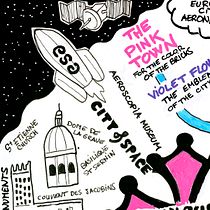 EURO
CITY
AERONA
THE
PINK
TOWN
FOR THE COLOR
OF THE BRICKS
VIOLET FLOW
THE EMBLEM
OF THE CITY
ese
CITY of SPACE
AEROSCOPIA MUSEUM
ST ETIENNE
DOME DE
LA GRAVE
BASILIQUE
ST SERNIN
COUVENT DES JACOBINS
NUMENTS